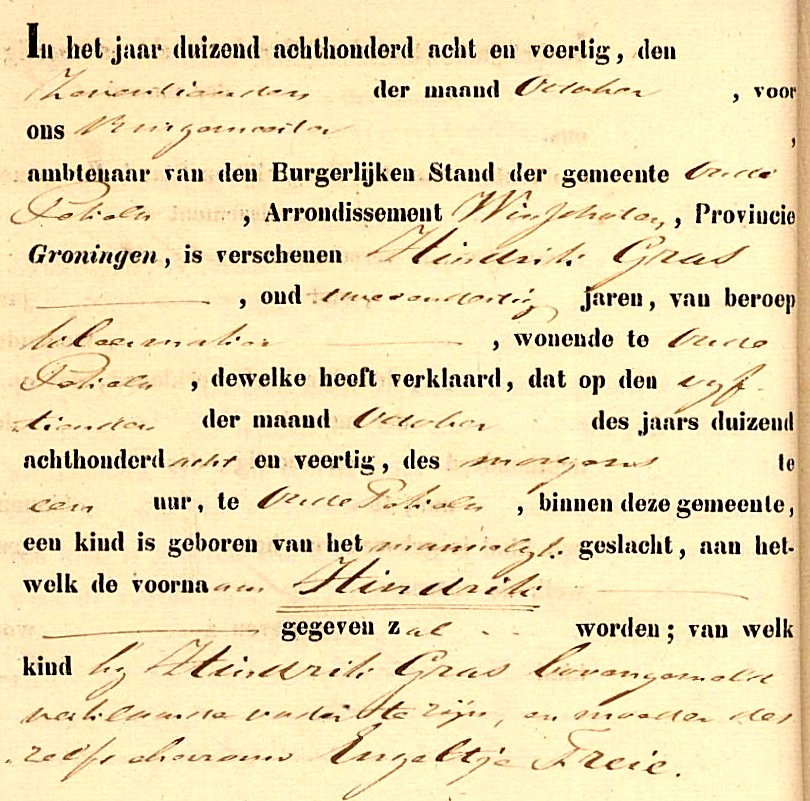 In het jaar duizend achthonderd acht en veertig, den
Zeventienden der maand October , voor
ons Burgemeester ,
ambtenaar van den Burgerlijken Stand der gemeente Oude
Pekela , Arrondissement Winschoten, Provincie
Groningen, is verschenen Hindrik Gras
, oud tweeendertig jaren, van beroep
, wonende te Oude
Pekela , dewelke heeft verklaard, dat op den vijf-
tienden der maand October des jaars duizend
achthonderd acht en veertig, des morgens te
een uur, te Oude Pekela , binnen deze gemeente,
een kind is geboren van het mannelijk geslacht, aan het-
welk de voornaam Hindrik
gegeven zal worden; van welk
kind hij Hindrik Gras bovengemeld
verklaarde vader te zijn, en moeder des
zelfs ehevrouw Engeltje Freie.